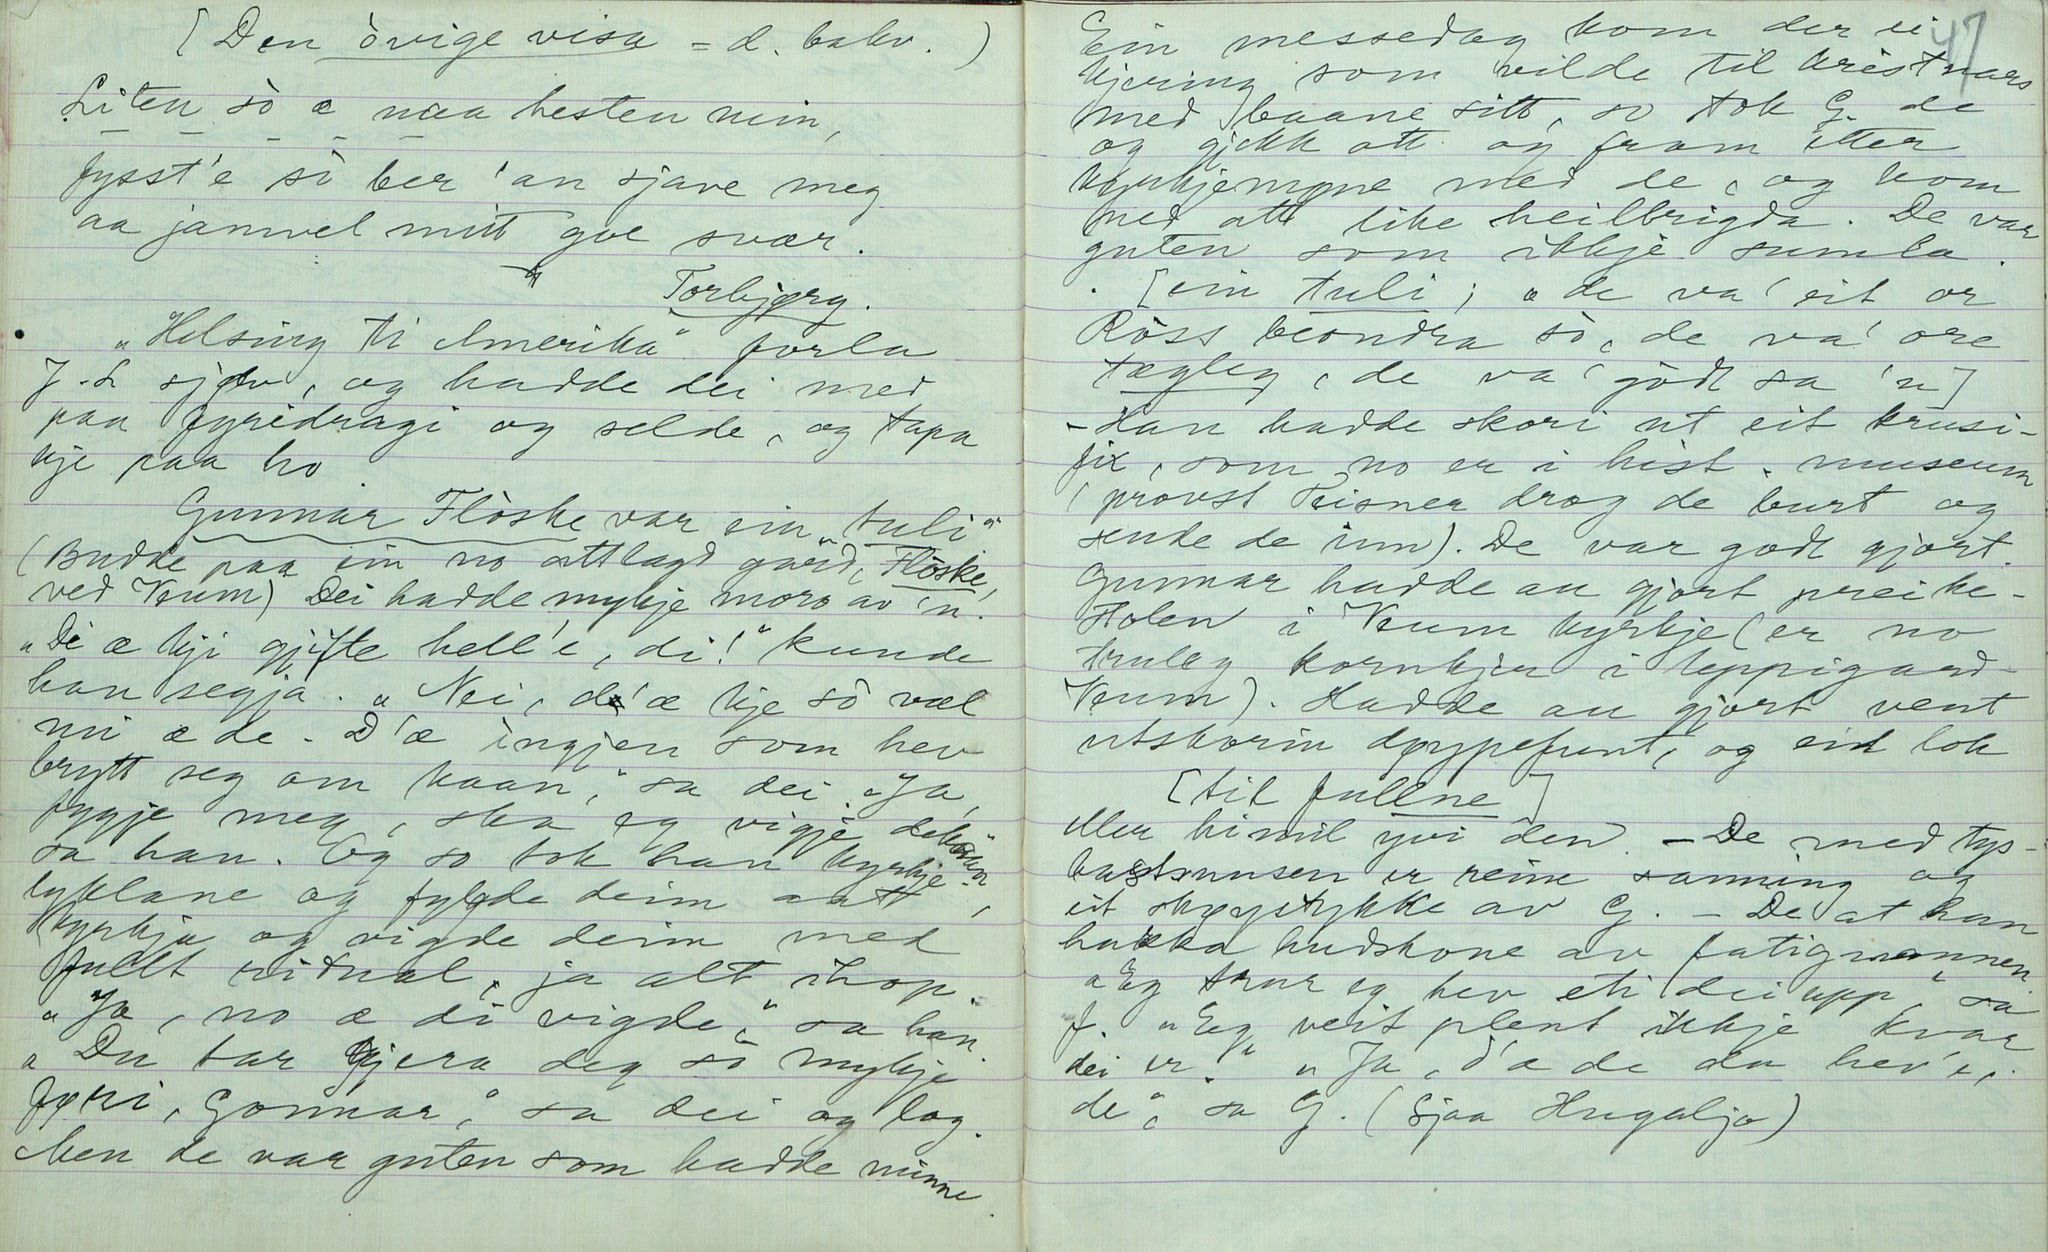 [Den òvige visa = d. bakv. )
Liten sò æ naa hesten min,
– – – – –
fysst'e sò ber 'an sjave meg
aa jamvel mitt goe svær.
Torbjørg.
"Helsing ti Amerika" forla
J.L sjølv, og hadde dei med
paa fyridragi og selde, og tapa
kje paa ho
Gunnar Flòske var ein "tuli"
(Budde paa ein no attlagd gard, Flòske,
ved Veum) Dei hadde mykje moro av 'n.
"Di æ kji gjifte hell'e, di!" kunde
han segja. "Nei, d'æ kje sò væl
mi æ de - D'æ ingjen som hev
brytt seg om kaan", sa dei. "Ja,
fygje meg, ska eg vigje dekan"
sa han. Og so tok han kyrkje-
lyklane og fylgde deim att i
kyrkja og vigde deim med
fullt ritual, ja alt ihop.
"Ja, no æ di vigde", sa han.
"Du tar gjera deg sò mykje
føri, Gonnar", sa dei og log.
Men de var guten som hadde minne.
47
Ein messedag kom der ei
kjering som vilde til kristnars
med baane sitt, so tok G. de
og gjekk att og fram etter
kyrkjemgne med de, og kom
med att like heilbrigda. De var
guten som ikkje sumla.
[ein tuli; "de va' eit or
Ròss beondra sò, de va' ore
tægleg, de va' gòdt sa 'n]
- Han hadde skori ut eit krusi-
fix, som no er i hist. museum
(provst Reisner drog de burt og
sende de inn). De var godt gjort.
Gunnar hadde au gjort preike-
stolen i Veum kyrkje (er no
truleg kornkjer i Uppigard
Veum). Hadde au gjort vent
utskorin døypefunt, og eit lok
[til fullne]
eller himil yvi den. - De med tys-
bastsmusen er reine sanning og
eit skøyestykke av G. - De at han
hakka hudskone av fatigmannen.
"Eg trur eg hev eti dei upp," sa
f. "Eg veit plent ikkje kvar
dei er." "Ja, d'æ de du hev'e,
de", sa G. (Sjaa Hugaljo)